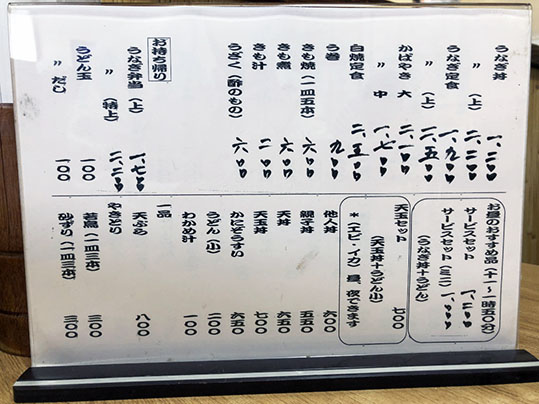 うなぎ丼 一、二〇〇
〃 (上) 二、二〇〇
うなぎ定食 一、九〇〇
〃 (上) 二、五〇〇
かばやき 大 二、一〇〇
〃 中 一、七〇〇
白焼定食 二、五〇〇
う巻 九〇〇
きも焼(一皿五本) 六〇〇
きも煮 六〇〇
きも汁 二〇〇
うざく(酢のもの) 六〇〇
お持ち帰り
うなぎ弁当(上) 一、七〇〇
〃 (特上) 二、二〇〇
うどん玉 一〇〇
〃 だし 一〇〇
お昼のおすすめ品(十一~一時五〇分)
サービスセット 一、二〇〇
サービスセット(ミニ) 一、〇〇〇
(うなぎ丼+うどん)
天玉セット 七〇〇
(天玉丼+うどん小)
*(エビ・イカ)昼、夜できます
他人丼 六〇〇
親子丼 五五〇
天丼 六五〇
天玉丼 七〇〇
かにぞうすい 六五〇
うどん(小) 二〇〇
わかめ汁 一〇〇
一品
天ぷら 八〇〇
やきとり
若鳥(一皿三本) 三〇〇
砂ずり(一皿三本) 三〇〇